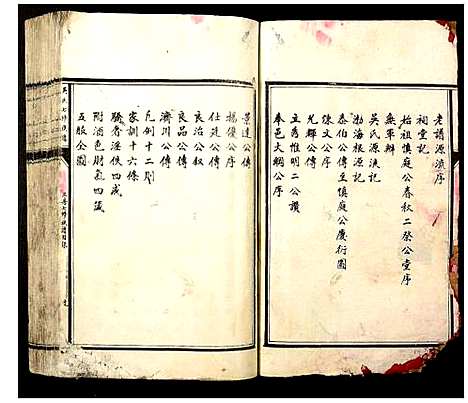 老譜源流序
祠堂記
始祖慎庭公春秋二祭公堂序
無軍辨
吳氏源流記
渤海根源記
泰伯公傳至慎庭公慶衍圖
煉文公序
光輝公傳
立為惟明二公讚
奉邑大綱公序
景達公傳
楊優公序
仕廷公傳
良治公叙
良品公傳
濟川公傳
凡例十二則
家訓十六條
驕奢淫佚四戒
附酒色財氣四箴
五服全圖
吳氏七修族譜